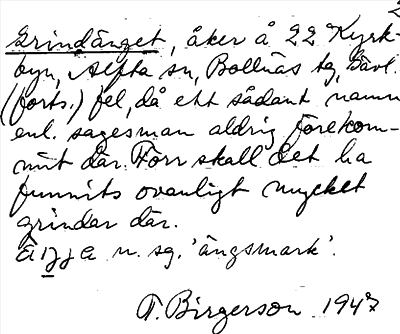 2
Grindänget, åker å 22 Kyrk-
byn, Alfta sn, Bollnäs tg, Gävl.
(forts.) fel, då ett sådant namn
enl. sagesman aldrig förekom-
mit där. Förr skall det ha
funnits ovanligt mycket
grindar där.
n. sg. 'ängsmark'.
T. Birgerson 1947